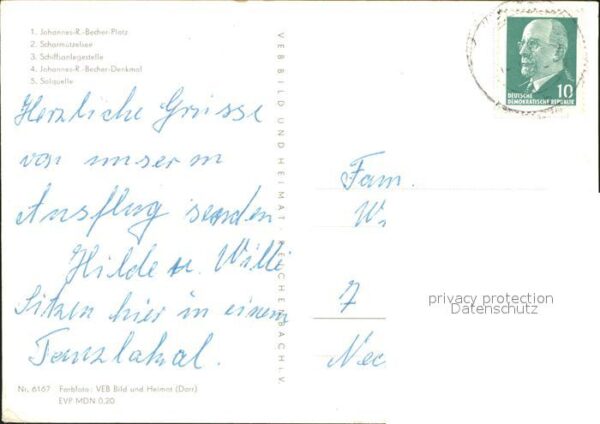 1. Johannes-R.-Becher-Platz
2. Scharmützelsee
3. Schiffsanlegestelle
4. Johannes-R.-Becher-Denkmal
5. Solquelle
Herzliche Grüsse
von unserm
Ausflug senden
Hilde u. Willi
Sitzen hier in einem
Tanzlokal.
Nr. 6167 Farbfoto: VEB Bild und Heimat (Darr)
EVP MDN 0,20
VEB BILD UND HEIMAT REICHENBACH i. V.
10
DEUTSCHE
DEMOKRATISCHE REPUBLIK
Fam.
W
7
Nec
privacy protection
Datenschutz